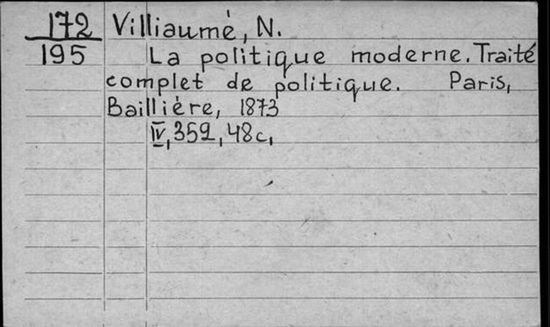 172 Villiaumé, N.
195 La politique moderne. Traité
complet de politique. Paris,
Baillière, 1873
IV, 359, 48c,